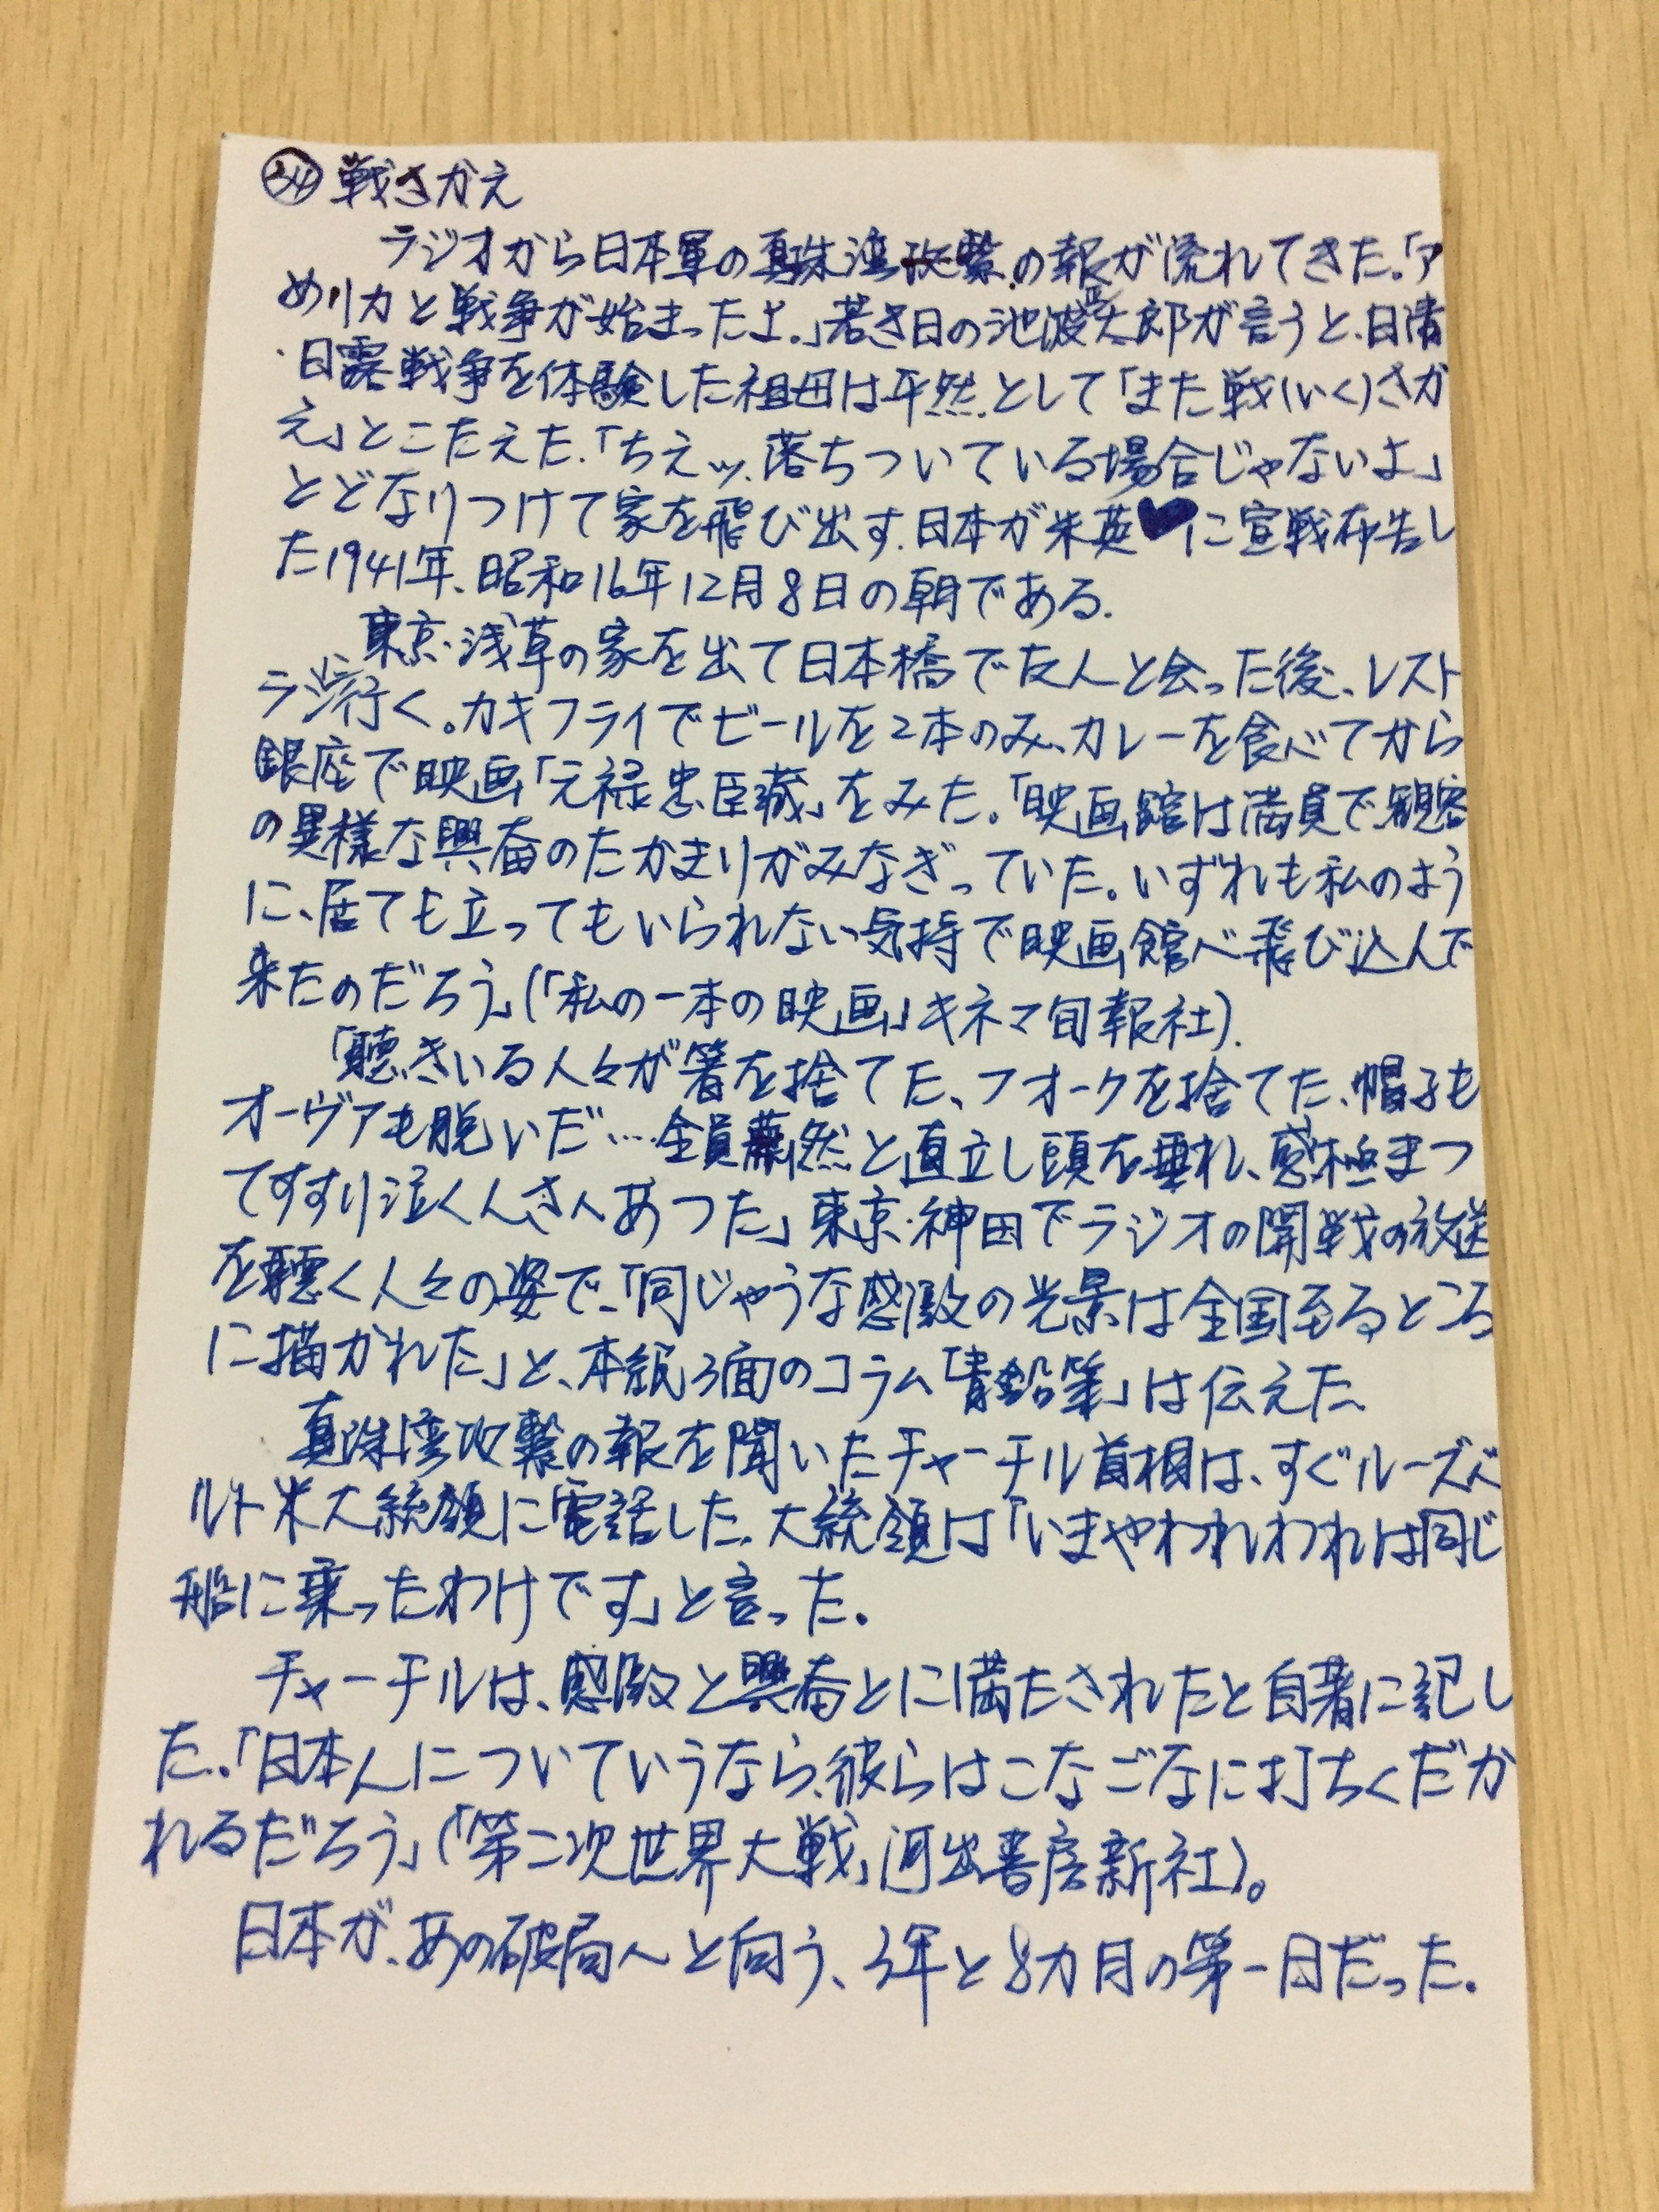 ㉞ 戦さかえ
ラジオから日本軍の真珠湾攻撃の報が流れてきた。「ア
めリカと戦争が始まったよ。」若き日の池波正太郎が言うと、日清
・日露戦争を体験した祖母は平然として「また戦(いく)さか
え」とこたえた。「ちえッ、落ちついている場合じゃないよ」
とどなりつけて家を飛び出す。日本が米英♥に宣戦布告し
た1941年、昭和16年12月8日の朝である。
東京・浅草の家を出て日本橋で友人と会った後、レスト
ランに行く。カキフライでビールを2本のみ、カレーを食べてから
銀座で映画「元禄忠臣蔵」をみた。「映画館は満員で、観客
の異様な興奮のたかまりがみなぎっていた。いずれも私のよう
に、居ても立ってもいられない気持で映画館へ飛び込んで
来たのだろう」(「私の一本の映画」キネマ旬報社).
「聴きいる人々が箸を捨てた、フオークを捨てた、帽子も
オーヴァも脱いだ…全員粛然と直立し頭を垂れ、感極まつ
てすすり泣く人さへあつた」東京・神田でラジオの開戦の放送
を聴く人々の姿で、「同じやうな感激の光景は全国至るところ
に描かれた」と、本紙3面のコラム「青鉛筆」は伝えた。
真珠湾攻撃の報を聞いたチャーチル首相は、すぐルーズベ
ルト米大統領に電話した。大統領は「いまやわれわれは同じ
船に乗ったわけです」と言った。
チャーチルは、感激と興奮とに満たされたと自著に記し
た。「日本人についていうなら、彼らはこなごなに打ちくだか
れるだろう」(「第二次世界大戦」河出書房新社)。
日本が、あの破局へと向う、3年と8カ月の第一日だった。